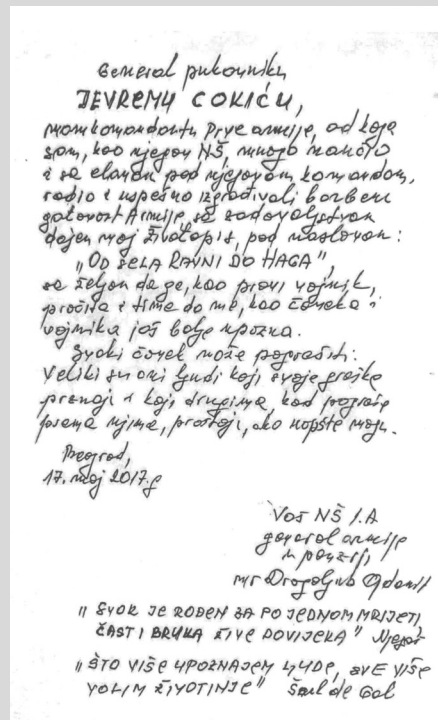 General pukovniku
JEVREMU COKIĆU,
mom komandantu Prve armije, od koga
sam, kao njegov NŠ, mnogo naučio
i sa elanom pod njegovom komandom,
radio i uspešno izgrađivali borbenu
gotovost Armije, sa zadovoljstvom
dajem moj životopis, pod naslovom:
"OD SELA RAVNI DO HAGA",
sa željom da ga, kao pravi vojnik,
pročita i time da me, kao čoveka i
vojnika još bolje upozna.
Svaki čovek može pogrešiti.
Veliki su oni ljudi koji svoje greške
priznaju i koji drugima kad pogreše
prema njima, praštaju, ako uopšte mogu.
Beograd,
17. maj 2017.g
Vaš NŠ 1.A
general armije
u penziji
mr Dragoljub Ojdanić
"SVAK JE ROĐEN ZA PO JEDNOM MRIJETI,
ČAST I BRUKA ŽIVE DOVIJEKA" Njegoš
"ŠTO VIŠE UPOZNAJEM LJUDE, SVE VIŠE
VOLIM ŽIVOTINJE" Šarl de Gol